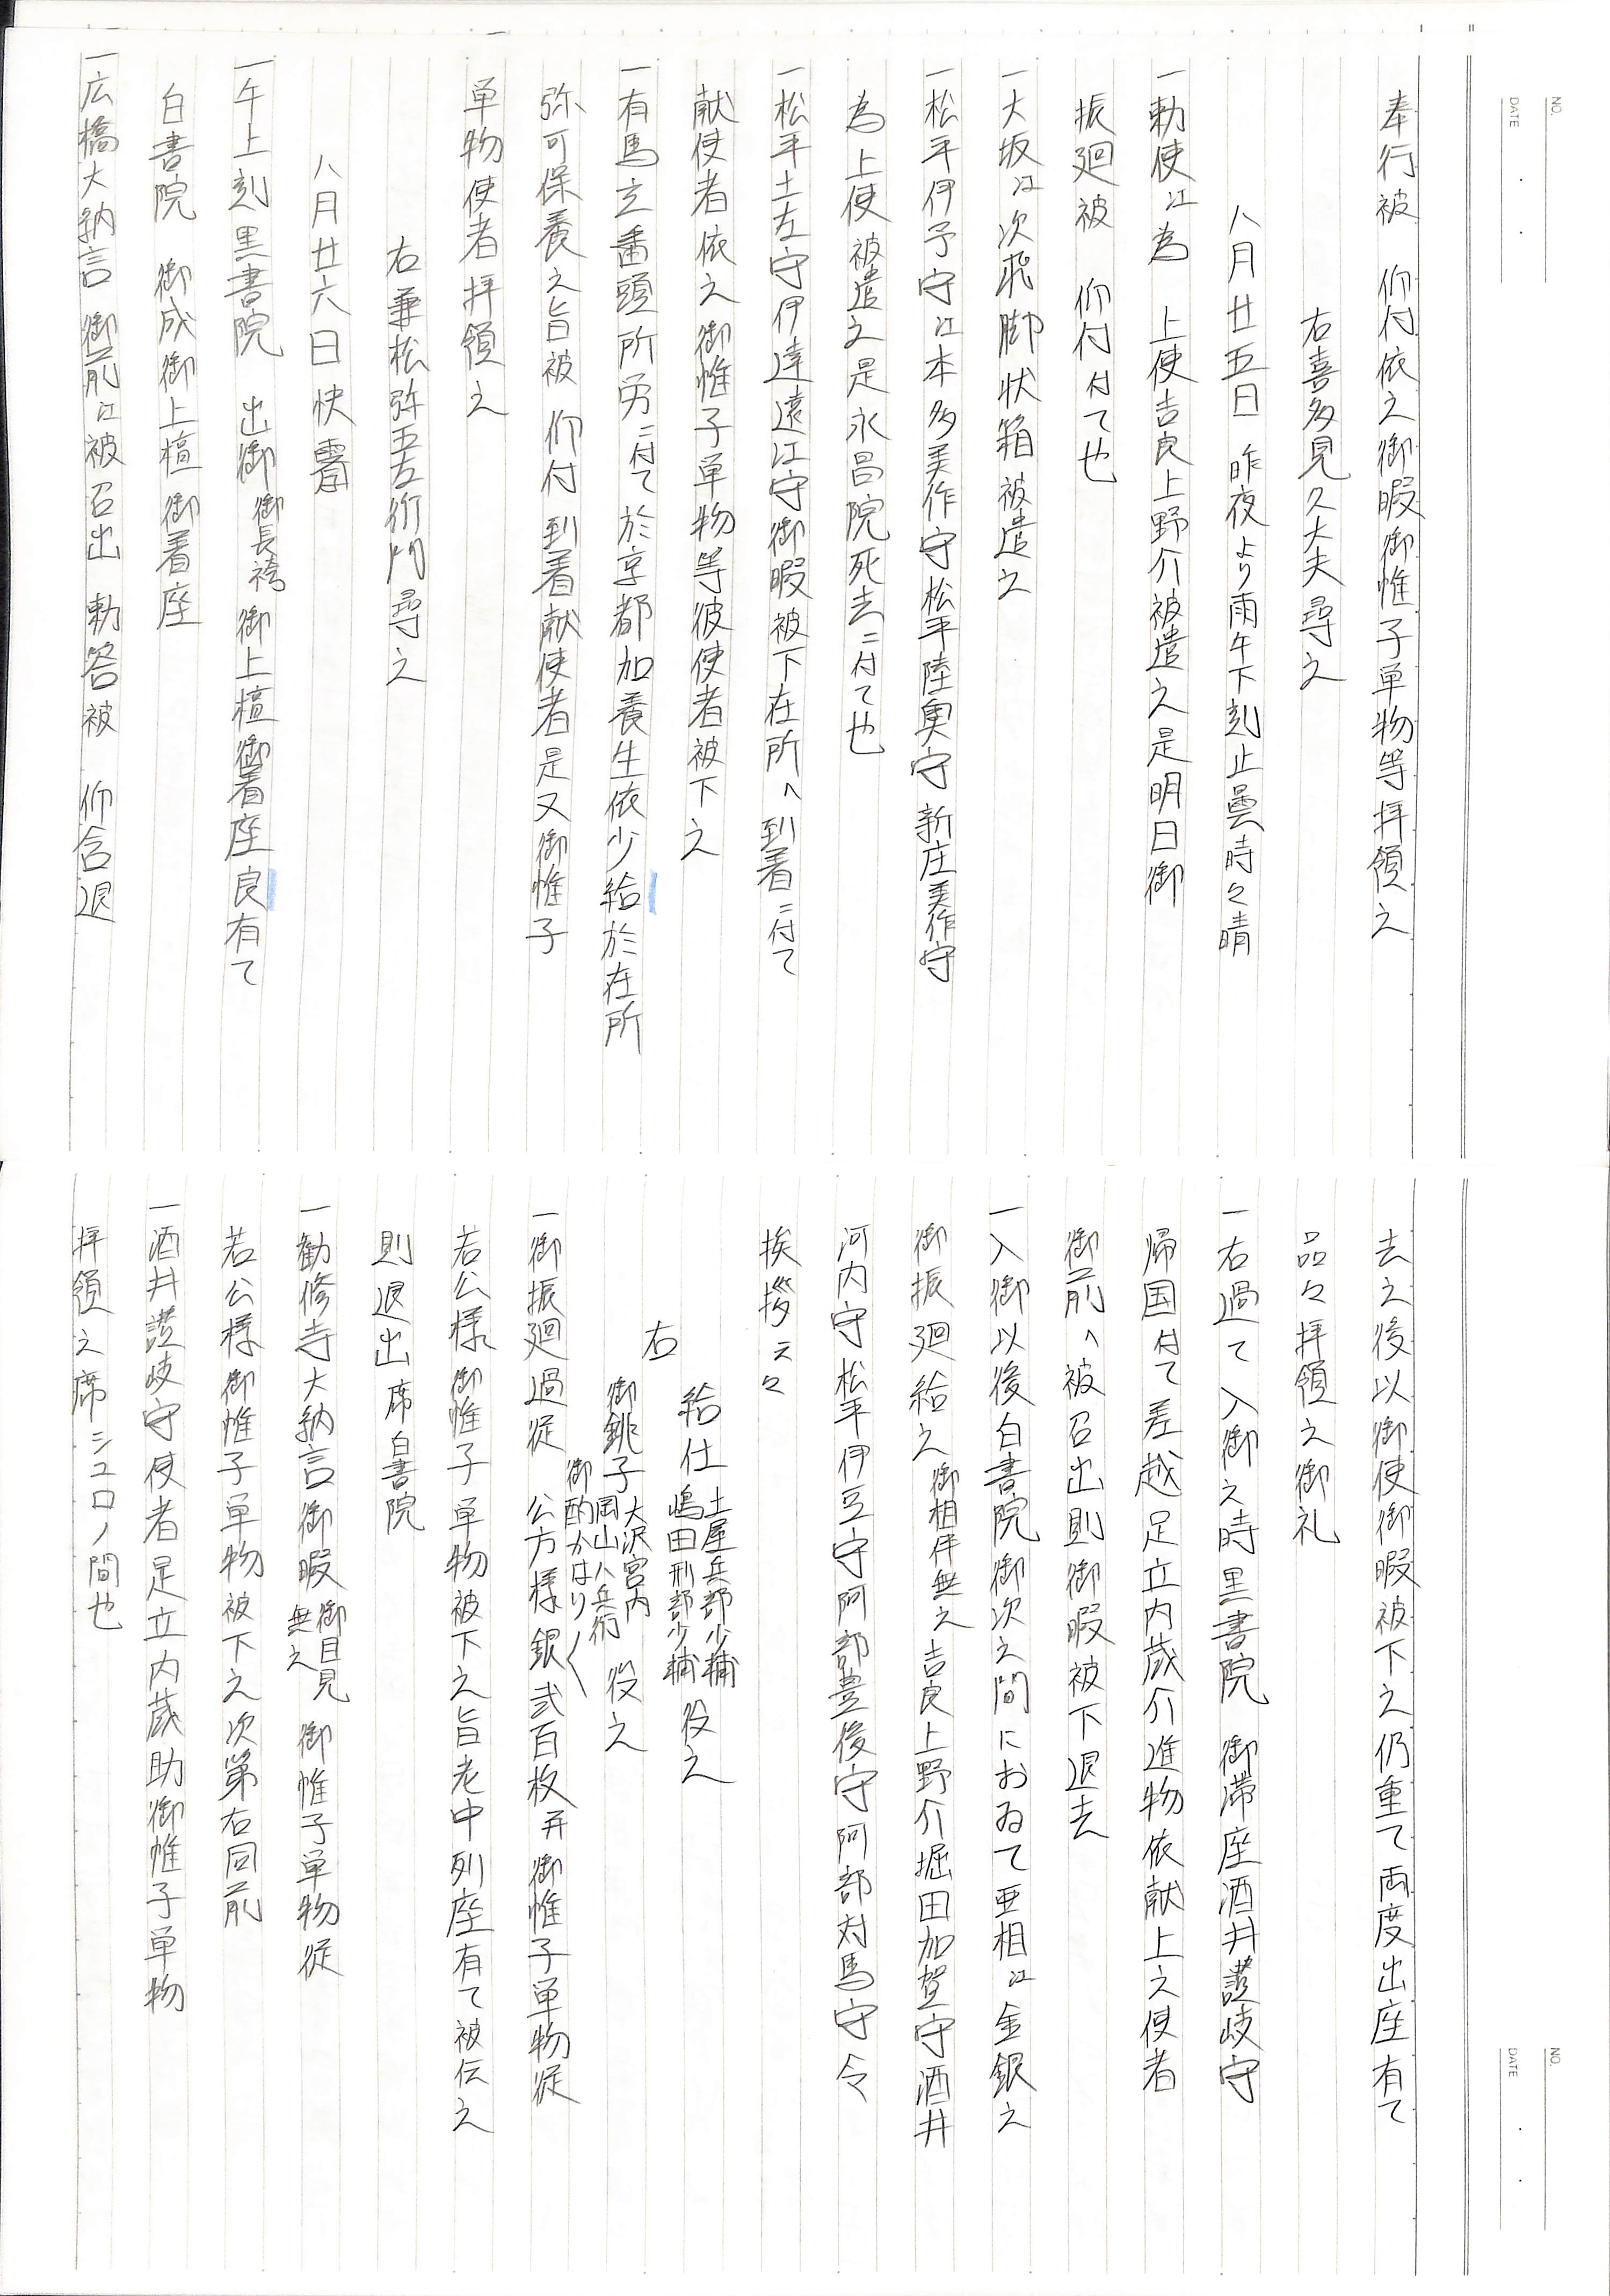 NO.
DATE
奉行被　仰付依之御暇御帷子単物等拝領之
右喜多見久大夫尋之
八月廿五日　昨夜より雨午下刻止曇時々晴
一勅使江為　上使吉良上野介被遣之是明日御
振廻被　仰付付て也
一大坂江次飛脚状箱被遣之
一松平伊予守江本多美作守松平陸奥守新庄美作守
為上使被遣之是永昌院死去ニ付て也
一松平土左守伊達遠江守御暇被下在所へ到着ニ付て
献使者依之御帷子単物等彼使者被下之
一有馬玄蕃頭所労ニ付て於京都加養生依少給於在所
弥可保養之旨被　仰付到着献使者是又御帷子
単物使者拝領之
右兼松弥五左衛門尋之
八月廿六日快霽
一午上刻黒書院　出御御長袴御上檀御着座良有て
白書院　御成御上檀御着座
一広橋大納言　御前江被召出　勅答被　仰含退
NO.
DATE
去之後以御使御暇被下之仍重て両度出座有て
品々拝領之御礼
一右過て入御之時黒書院　御滞座酒井讃岐守
帰国付て差越足立内蔵介進物依献上之使者
御前へ被召出則御暇被下退去
一入御以後白書院御次之間におゐて亜相江金銀之
御振廻給之御相伴無之吉良上野介堀田加賀守酒井
河内守松平伊豆守阿部豊後守阿部対馬守令
挨拶云々
給仕　土屋兵部少輔　嶋田刑部少輔　役之
右
御銚子　大沢宮内　岡山八兵衛　役之
御酌かはり〱
一御振廻過従　公方様銀弐百枚并御帷子単物従
若公様御帷子単物被下之旨老中列座有て被伝之
則退出　席白書院
一勧修寺大納言御暇　御目見無之　御帷子単物従
若公様御帷子単物被下之次第右同前
一酒井讃岐守使者足立内蔵助御帷子単物
拝領之席シュロノ間也